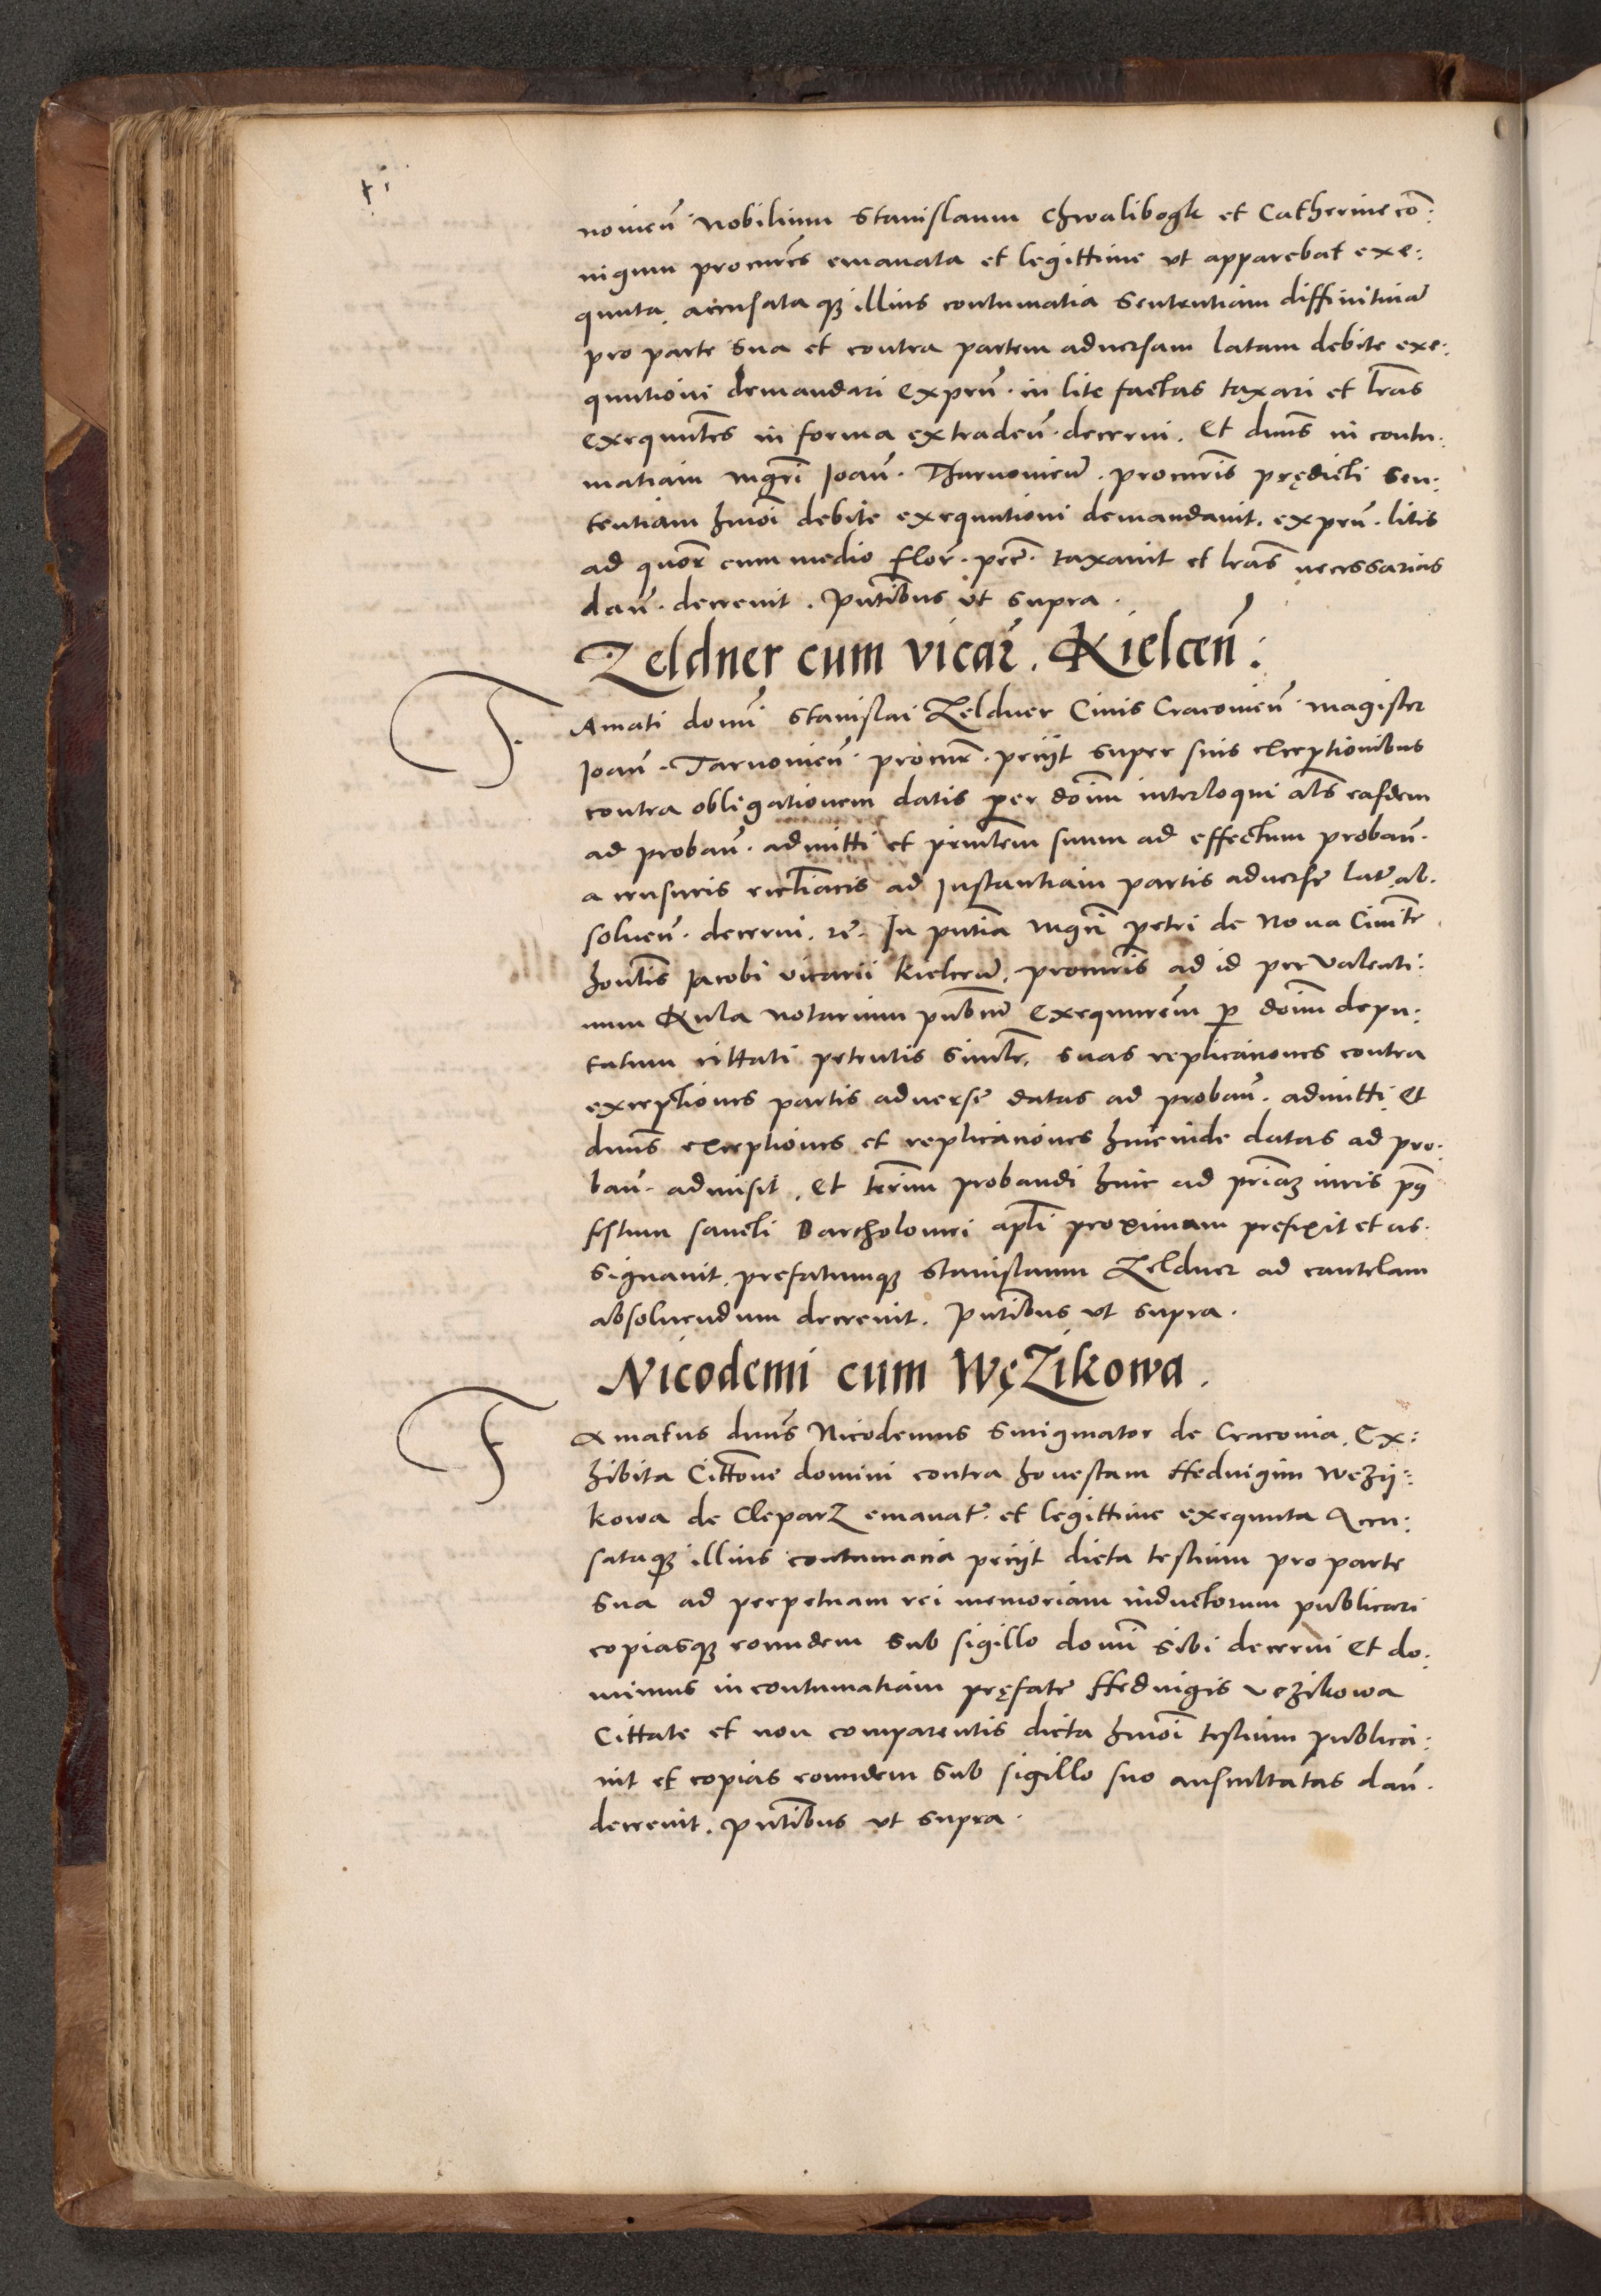 nomen̄ Nobilium Stanislaum Chwalibogk et Catherine co͞:
nigum procur̄es emanata et legittime vt apparebat exe:
quuta, accusataqȝ illius contumatia Sententiam diffinitiuā
pro parte Sua et contra partem aduersam latam debite exe:
quutioni demandari Expen̄. in lite factas taxari et lr̄as
Exequutēs in forma extraden̄. decerni. Et dnūs in contu:
matiam mgr̄i Joan̄. Tharnouien̄. procur̄is prędicti Sen:
tentiam hmōi debite exequutioni demandauit. expen̄. litis
ad quor̄ cum medio flor̄. pec̄. taxauit et lr̄as necessarias
dan̄. decreuit. Pn̄tibus vt supra.
Zeldner cum vicar̄. Kielcen̄:
F Amati domi͞ Stanislai Zeldner Ciuis Cracouien̄. magister
Joan̄. Tarnouien̄. procur̄. petijt super suis exceptionibus
contra obligationem datis per doīm interloqui al̄s easdem
ad proban̄. admitti et princ̄lem suum ad effectum proban̄.
a censuris eccl̄iacis ad Instantiam partis aduersę lat̄. ab.
soluen̄. decerni. rē. In pn̄tia mgr̄i petri de Noua Ciuit̄e
hon̄tis Jacobi vicarii Kielcen̄, procur̄is ad id per Valenti:
num Kula notarium pub̄cum Exequut̄orem per doīm depu:
tatum cittati petentis Simil̄r, suas replicationes contra
exceptiones partis aduersę datas ad proban̄. admitti. Et
dnūs exceptiones et replicationes hincinde datas ad pro:
ban̄. admisit. Et ter̄im probandi hinc ad pr̄iaȝ iuris p͞
festum sancti Bartholomei apl̄i proximam prefixit et as.
signauit, prefatumqȝ Stanislaum Zeldner ad cautelam
absoluendum decreuit. Pn̄tibus vt supra.
Nicodemi cum WęZikowa.
F Amatus dnūs Nicodemus Smigmator de Cracouia. Ex:
hibita Citt̄one domini contra honestam Heduigim Weźij:
kowa de CleparZ emanat̄. et legittime exequuta Accu:
sataqȝ illius contumacia petijt dicta testium pro parte
Sua ad perpetuam rei memoriam inductorum publicari
copiasqȝ eorundem Sub sigillo domi͞ sibi decerni Et do:
minus in contumatiam pręfatę Heduigis vezikowa
Cittate et non comparentis dicta hmōi testium publica:
uit et copias eorundem Sub sigillo suo auscultatas dan̄.
decreuit. Pn̄tibus vt supra.